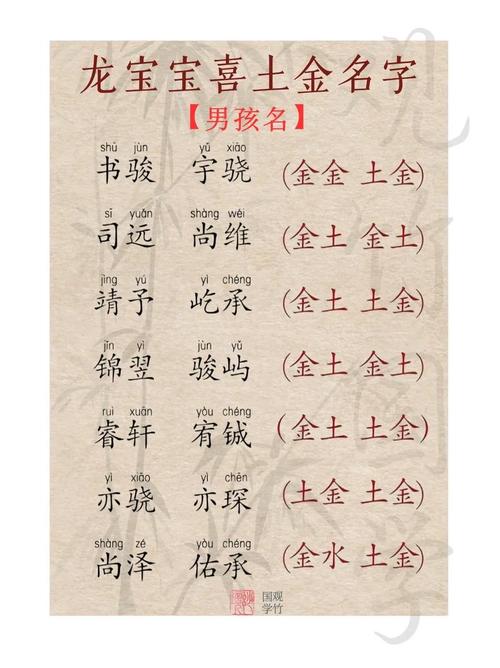 龙宝宝喜土金名字
【男孩名】
shū jùn yǔ xiāo
书骏 宇骁 (金金 土金)
sī yuǎn shàng wéi
司远 尚维 (金土 金土)
jìng yú yì chéng
靖予 屹承 (金土 土金)
jǐn yì jùn yǔ
锦翌 骏屿 (金土 金土)
ruì xuān yòu chéng
睿轩 宥铖 (金土 土金)
yì xiāo yì chēn
亦骁 亦琛 (土金 土金)
shàng zé yòu chéng
尚泽 佑承 (金水 土金)
国观
学竹
观竹国学